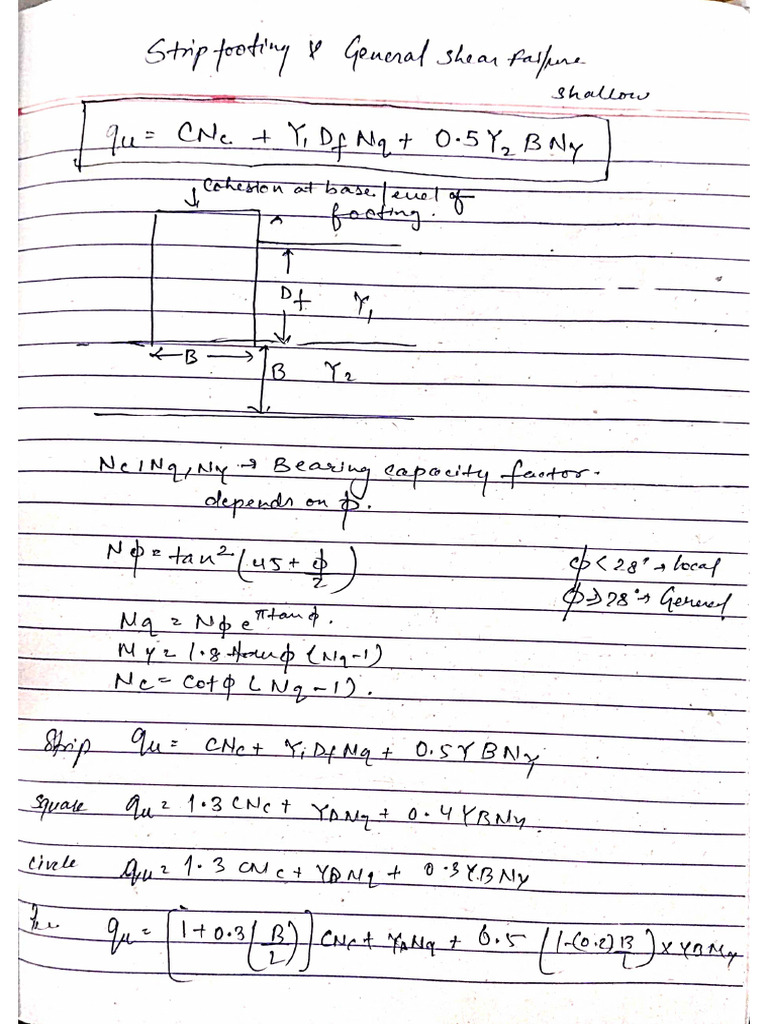 Strip footing & General shear failure
shallow
qu = CNc + γ1 Df Nq + 0.5 γ2 B Nγ
↓ Cohesion at base level of
footing.
Df γ1
← B →
B γ2
Nc, Nq, Nγ → Bearing capacity factor.
depends on ϕ.
Nϕ = tan² (45 + ϕ/2)
ϕ < 28° → local
ϕ ⩾ 28° → General
Nq = Nϕ e^πtanϕ.
Nγ = 1.8 tanϕ (Nq-1)
Nc = cotϕ (Nq-1).
Strip qu = CNc + γ1 Df Nq + 0.5 γ B Nγ
square qu = 1.3 CNc + γDNq + 0.4 γBNγ.
circle qu = 1.3 CNc + γDNq + 0.3 γBNγ
qu = [1 + 0.3 (B/2)] CNc + γDNq + 0.5 (1-(0.2)B/L) × γBNγ